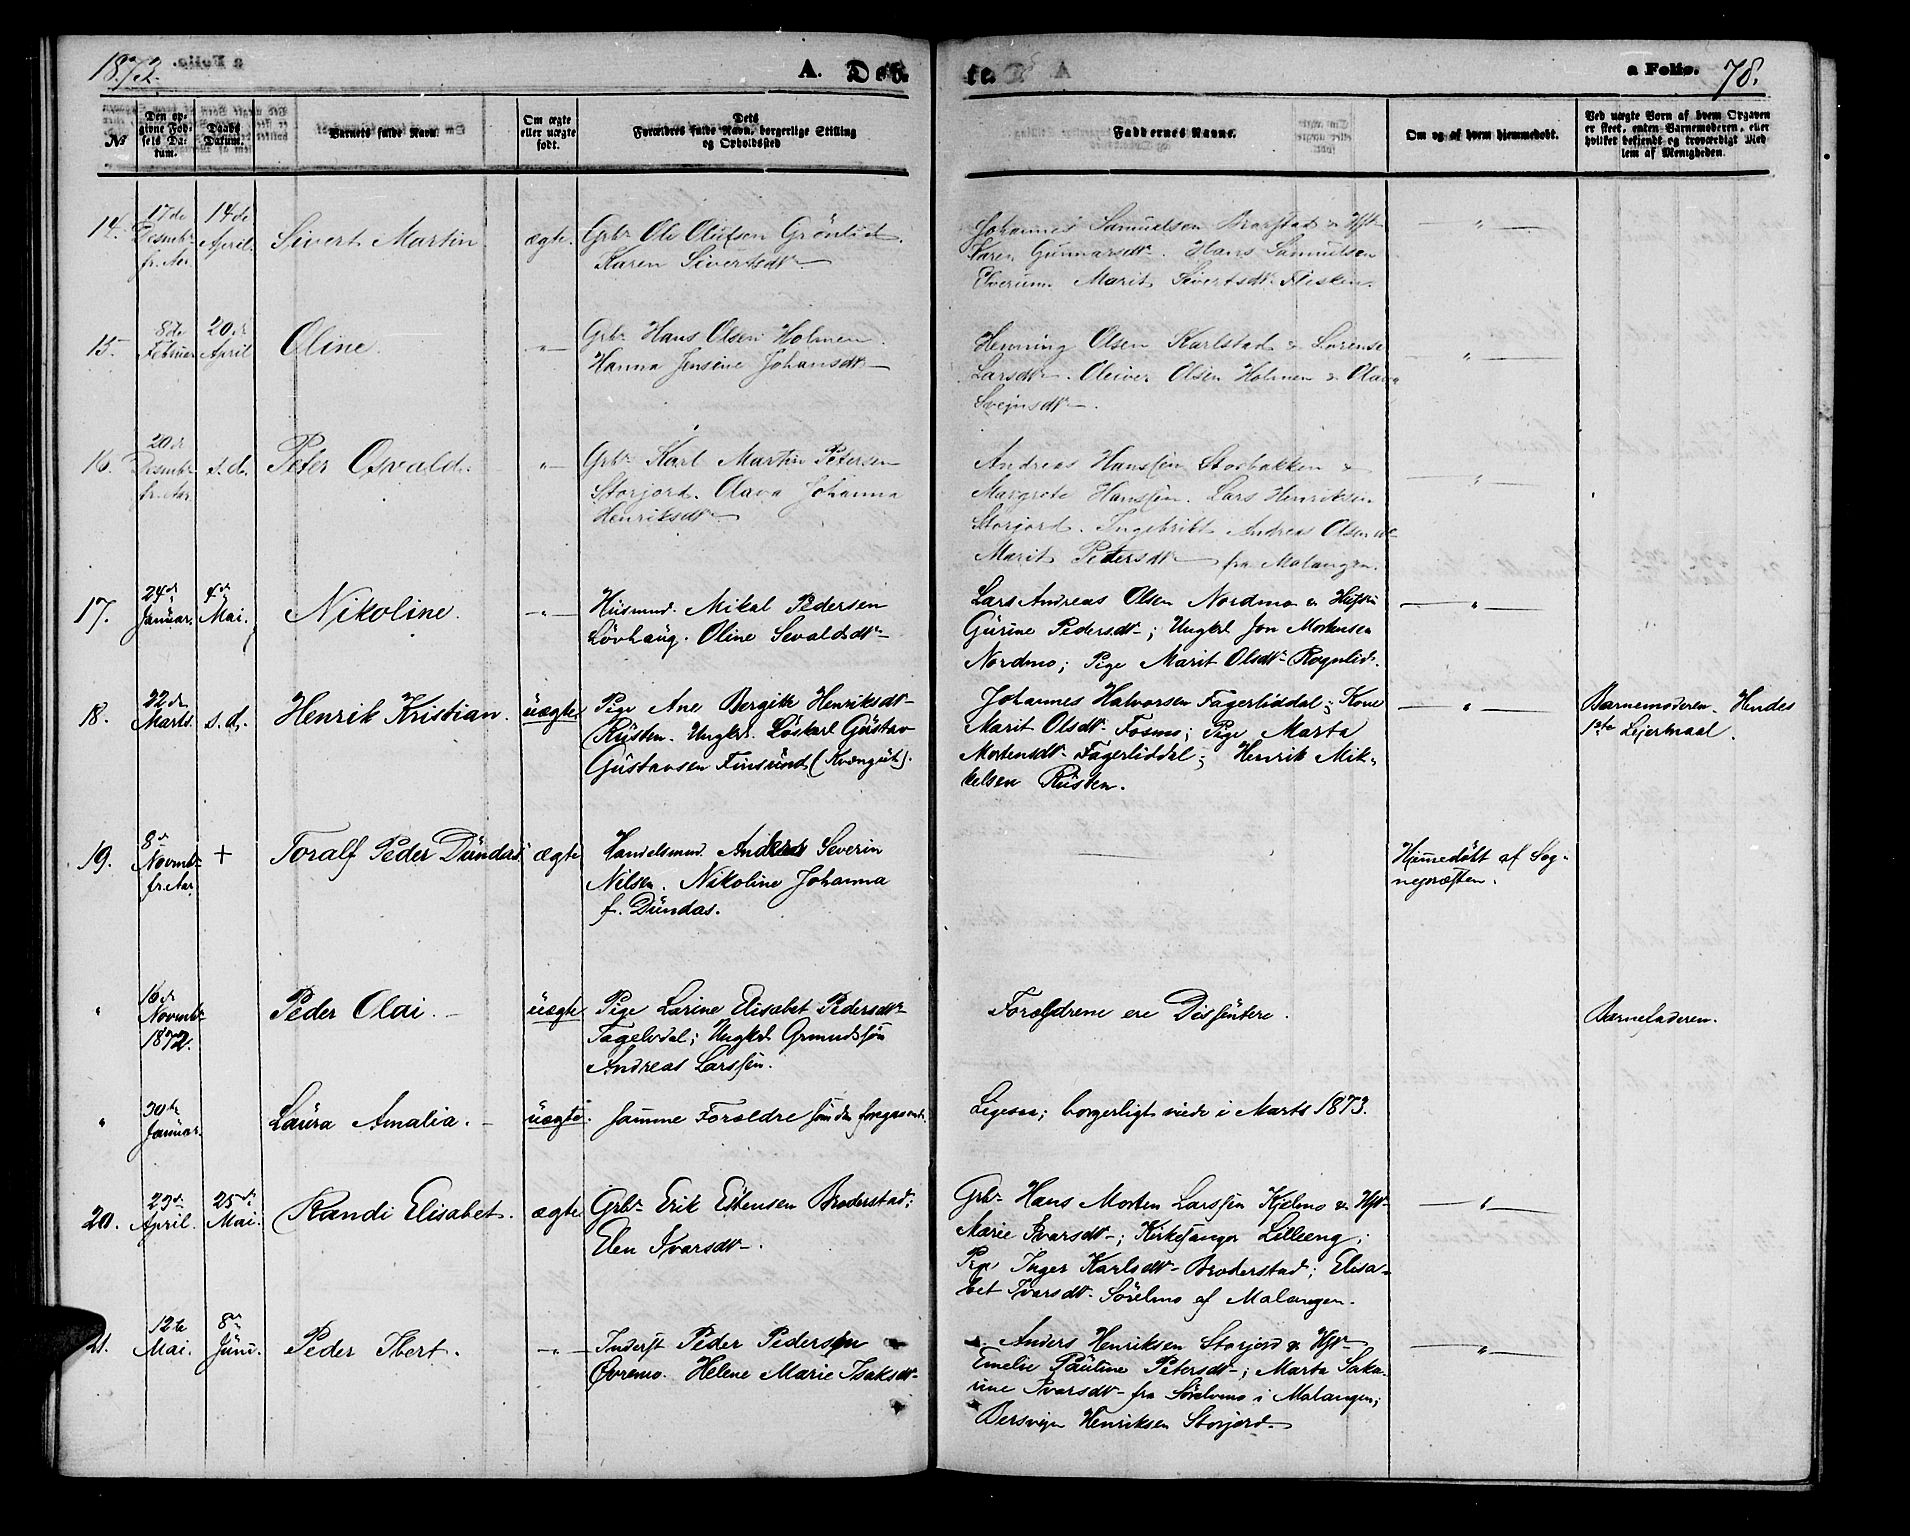 1873.
A. Døb-
te.
a Folio. 78.
№
Den op-
givne Fød-
sels Da-
tum.
Daabs
Datum.
Barnets fulde Navn.
Om ægte
eller uægte
født.
Dets
Forældres fulde Navn, borgerlige Stilling
og Opholdssted
Faddernes Navne.
Om og af hvem hjemmedøbt.
Ved uægte Børn af hvem Opgaven
er skeet, enten Barnemoderen, eller
hvilket bekjendt og troværdigt Med-
lem af Menigheden.
14.
17de
Desembr
fr. Aar.
14de
April.
Sivert Martin
ægte.
Grbr Ole Olufsen Grönlid.
Karen Sivertsdtr
Johannes Samuelsen Brarstad & Hst
Karen Gunnarsdtr. Hans Samuelsen
Elverum. Marit Sivertsdtr Flisken.
15.
8de
Februar
20de
April
Oline.
Grbr Hans Olsen Holmen.
Hanna Jensine Johansdtr
Henning Olsen Karlstad & Lorense
Larsdtr. Oleiver Olsen Holmen & Olava
Svejnsdtr.
16.
20de
Desembr
fr. Aar.
s. d.
Peter Osvald.
Grbr Karl Martin Petersen
Storjord. Olava Johanna
Henriksdtr
Andreas Hanssen Storbakken &
Margrete Hanssen. Lars Henriksen
Storjord. Ingebrikt Andreas Olsen
Marit Petersdtr fra Malangen.
17.
24de
Januar.
4de
Mai.
Nikoline.
Husmnd. Mikal Pedersen
Lövhaug. Oline Sevaldsdtr
Lars Andreas Olsen Nordmo & Hustru
Gurine Pedersdtr; Ungkrl Jon Mortensen
Nordmo; Pige Marit Olsdtr Rognlid.
18.
22de
Marts.
s. d.
Henrik Kristian.
uægte
Pige Ane Bergitte Henriksdtr
Rusten. Ungkrl. Löskarl Gustav
Gustavsen Finsund (Kvængut).
Johannes Halvorsen Fagerliddal; Kone
Marit Olsdtr Fosmo; Pige Marta
Mortensdtr Fagerliddal; Henrik Mik-
kelsen Rusten.
Barnemoderen. Hendes
1ste Lejermaal.
19.
8de
Novembr
fr. Aar.
+
Toralf Peder Dundas
ægte
Handelsmnd. Anders Severin
Nilsen. Nikoline Johanna
f. Dundas.
Hjemmedöbt af Sog-
nepræsten.
"
16de
Novembr
1872.
Peder Olai.
uægte
Pige Larine Elisabet Pedersdtr
Fagelvdal; Ungkrl Grmndssön
Andreas Larssen.
Forældrene ere Dissentere.
Barnefaderen.
"
30te
Januar.
Laura Amalia.
uægte.
Samme Forældre som den foregaaende.
Ligesaa; borgerligt viede i Marts 1873.
20.
29de
April.
25de
Mai.
Randi Elisabet.
ægte
Grbr Erik Estensen Broderstad;
Elen Ivarsdtr.
Grbr Hans Morten Larssen Kjelmo & Hst
Marie Ivarsdtr; Kirkesanger Lilleeng;
Pige Inger Karlsdtr Broderstad; Elisa-
bet Ivarsdtr Sörelmo af Malangen.
21.
12te
Mai.
8de
Juni.
Peder Ibert.
Inderst Peder Pedersen
Øvremo. Helene Marie Isaksdtr
Anders Henriksen Storjord & Hst
Emelie Pauline Petersdtr; Marta Saka-
rine Ivarsdtr fra Sörelvmo i Malangen;
Bersvejn Henriksen Storjord.